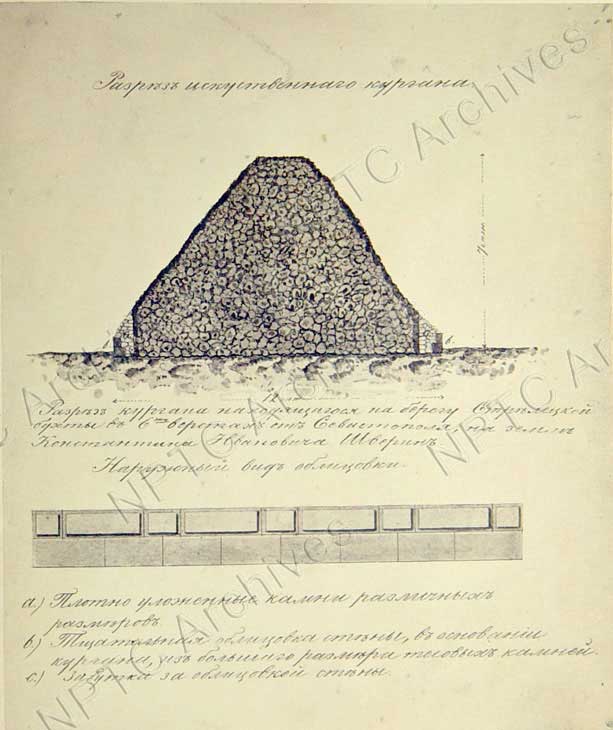 Разрѣзъ искуственнаго кургана.
Разрѣзъ кургана находящагося на берегу Стрѣлецкой
бухты въ 6ти верстахъ отъ Севастополя, на землѣ
Константина Ивановича Шверинъ.
Наружный видъ облицовки.
a.) Плотно уложенные камни различныхъ
размѣровъ.
b.) Тщательная облицовка стѣны, въ основаніи
кургана, изъ большаго размѣра тесовыхъ камней.
c.) Забутка за облицовкой стѣны.
NPTC Archives
NPTC Archives
NPTC Archives